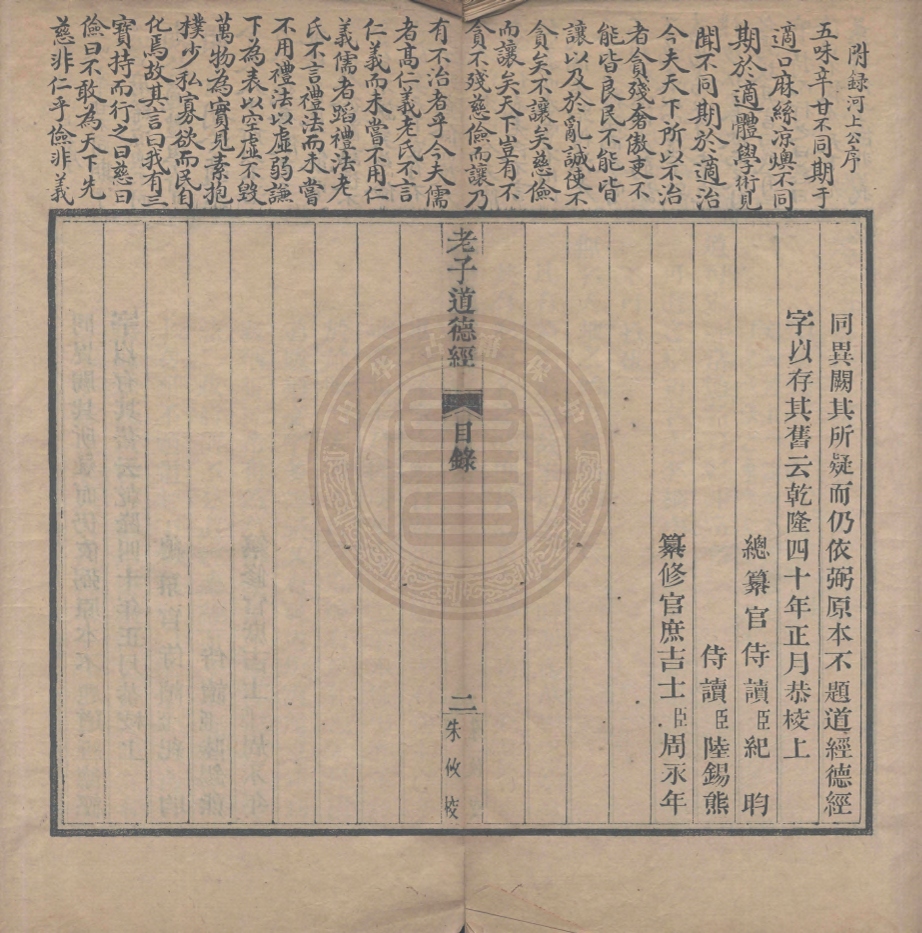 附録河上公序
五味辛甘不同期于
適口麻絲涼燠不同
期於適體學術見
聞不同期於適治
今夫天下所以不治
者貪殘奢傲吏不
能皆良民不能皆
讓以及於亂誠使不
貪矣不讓矣慈儉
而讓矣天下豈有不
貪不殘慈儉而讓乃
有不治者乎今夫儒
者高仁義老氏不言
仁義而未嘗不用仁
義儒者蹈禮法老
氏不言禮法而未嘗
不用禮法以虛弱謙
下為表以空虛不毀
萬物為實見素抱
樸少私寡欲而民自
化焉故其言曰我有三
寶持而行之曰慈曰
儉曰不敢為天下先
慈非仁乎儉非義
同異闕其所疑而仍依弼原本不題道經德經
字以存其舊云乾隆四十年正月恭校上
總纂官侍讀臣紀昀
侍讀臣陸錫熊
纂修官庶吉士臣周永年
老子道德經
目錄
二
朱攸校